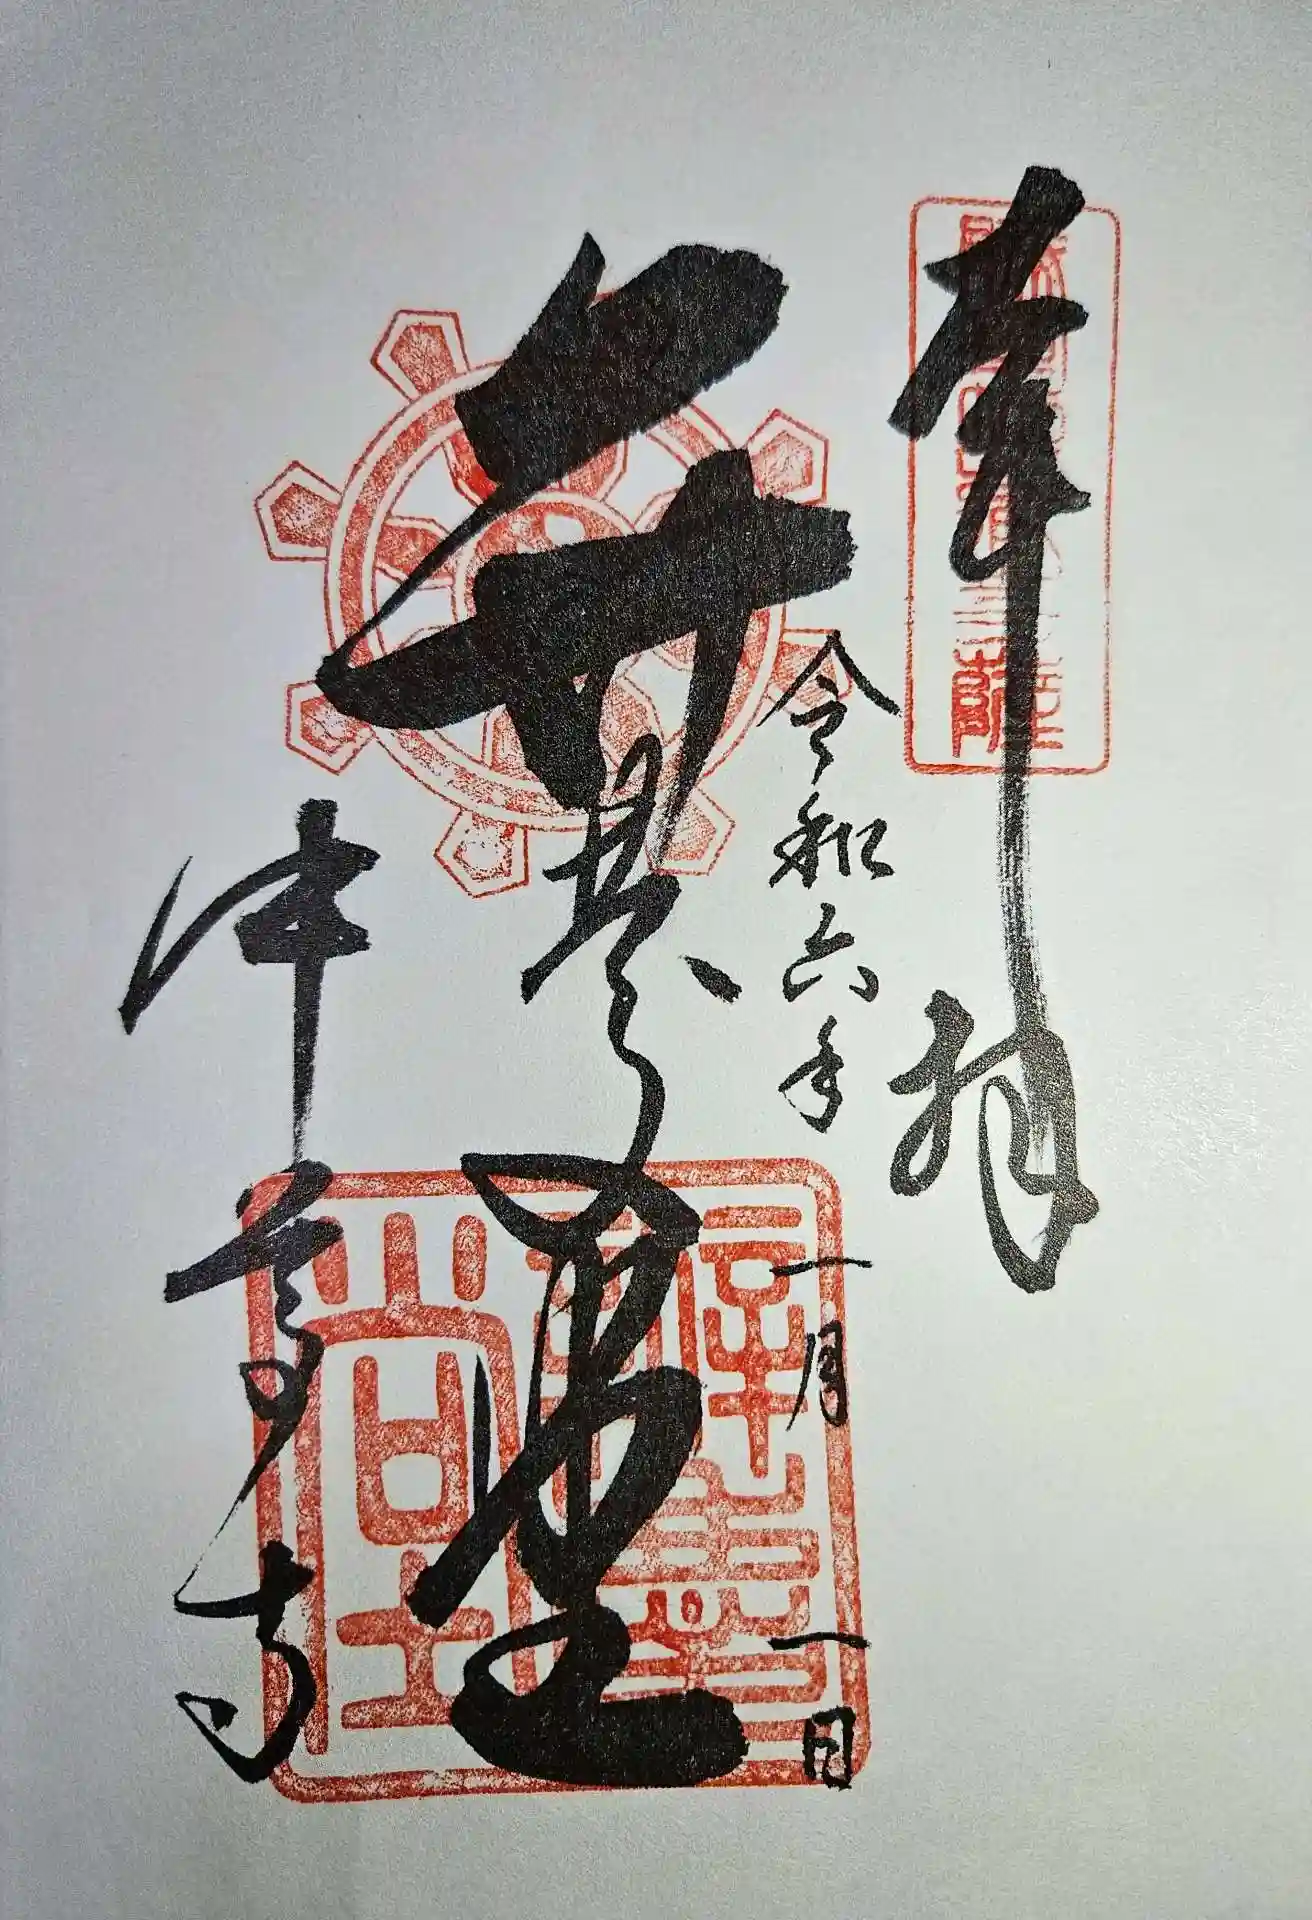 奉拝
令和六年 一月一日
弁慶堂
中尊寺